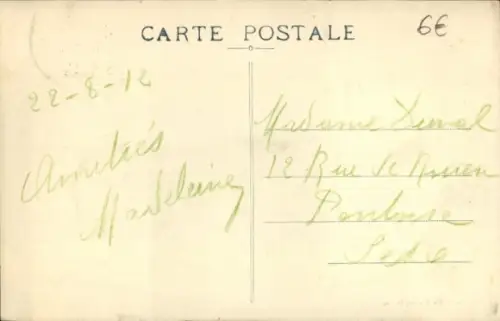 CARTE POSTALE
6€
22-8-12
Amitiés
Madeleine
Madame Duval
12 Rue de Rouen
Pontoise